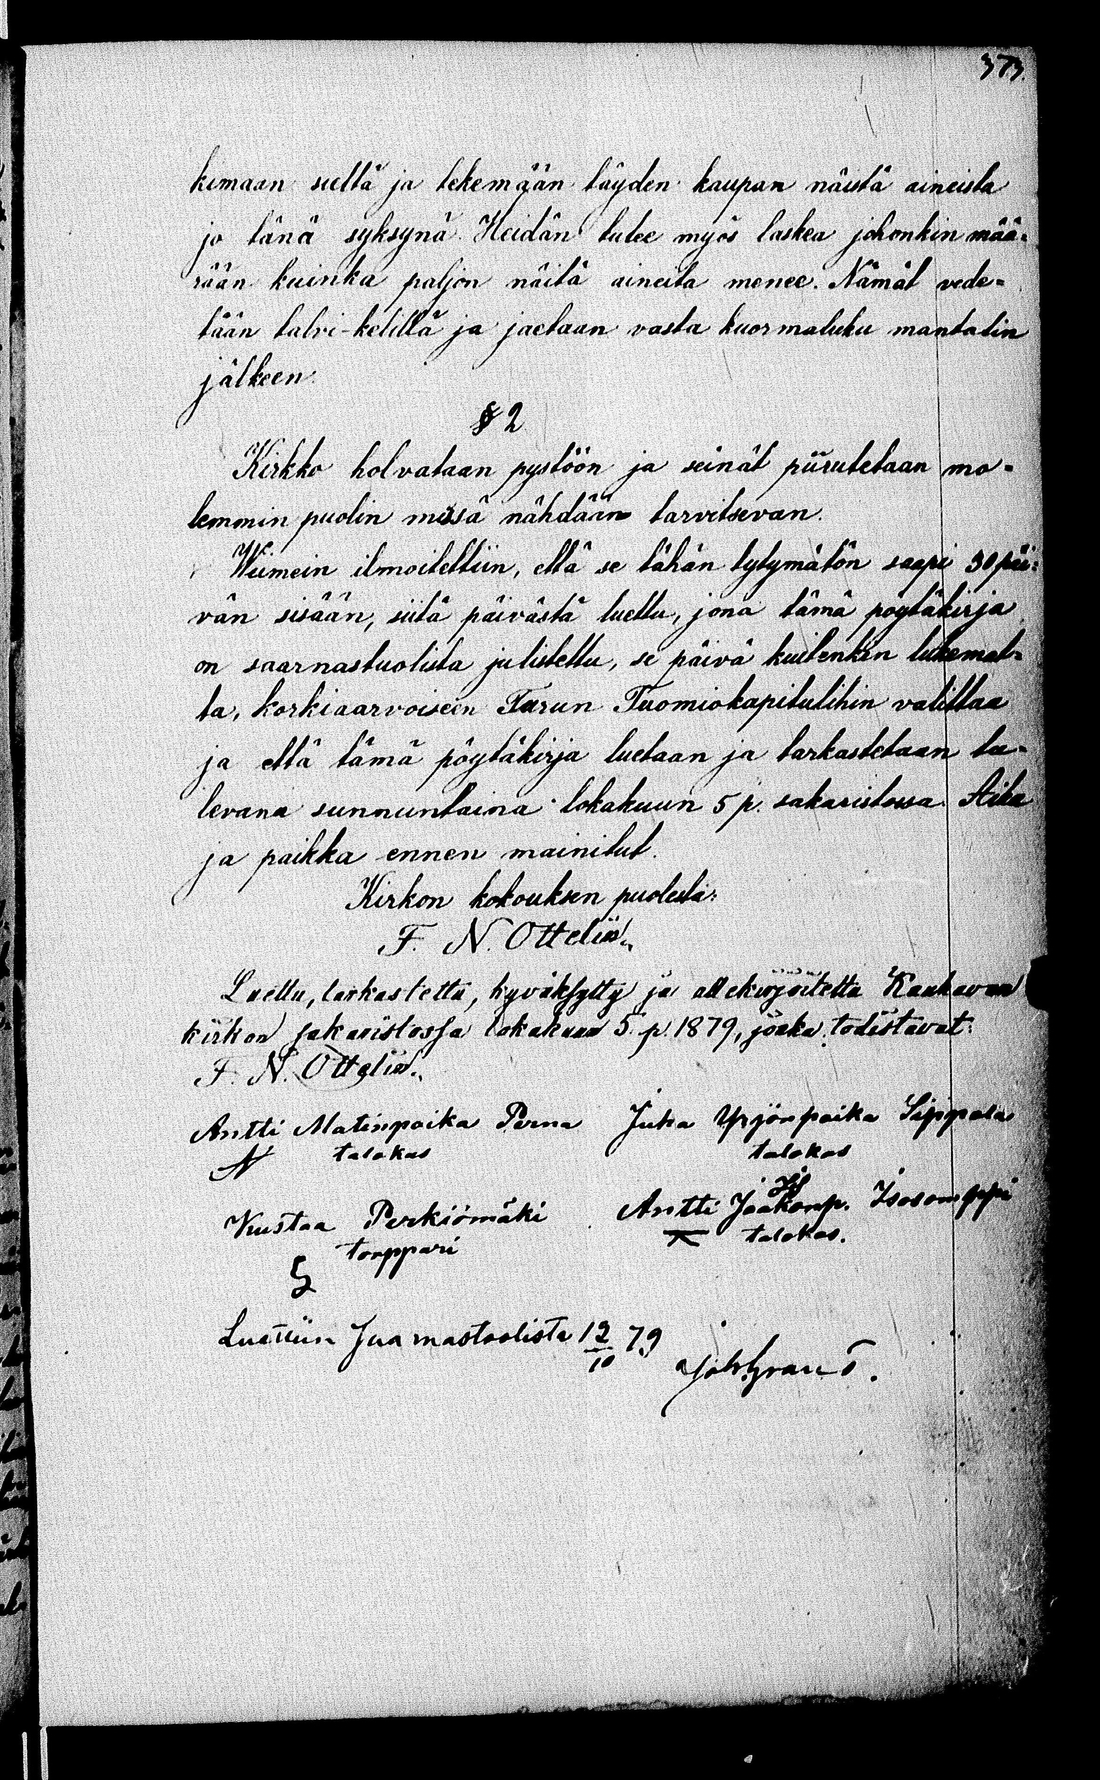 373.
kemaan sieltä ja tekemään täyden kaupan näistä aineista
jo tänä syksynä. Heidän tulee myös laskea johonkin mää-
rään kuinka paljon näitä aineita menee. Nämät vede-
tään talvi-kelillä ja jaetaan vasta kuormaluku manttalin
jälkeen.
§ 2
Kirkko holvataan pystöön ja seinät piirutetaan mo-
lemmin puolin missä nähdään tarvitsevan.
Wiimein ilmoitettiin, että se tähän tytymätön saapi 30 päi-
vän sisään, siitä päivästä luettu, jona tämä pöytäkirja
on saarnastuolista julistettu, se päivä kuitenkin lukemat-
ta, korkiaarvoiseen Turun Tuomiokapitulihin valittaa
ja että tämä pöytäkirja luetaan ja tarkastetaan tu-
levana sunnuntaina lokakuun 5 p. sakaristossa. Aika
ja paikka ennen mainitut.
Kirkon kokouksen puolesta:
F. N. Ottelin.
Luettu, tarkastettu, hyväksytty ja allekirjoitettu Kauhavan
kirkon sakaristossa lokakuun 5 p. 1879, jonka todistavat:
F. N. Ottelin.
Antti Matinpoika Perna Juha Yrjönpoika Sippola
talokas talokas
Kustaa Perkiömäki Antti Jaakonp. Isosomppi
torppari talokas.
Luettiin Saarnastoolista 12/10 79